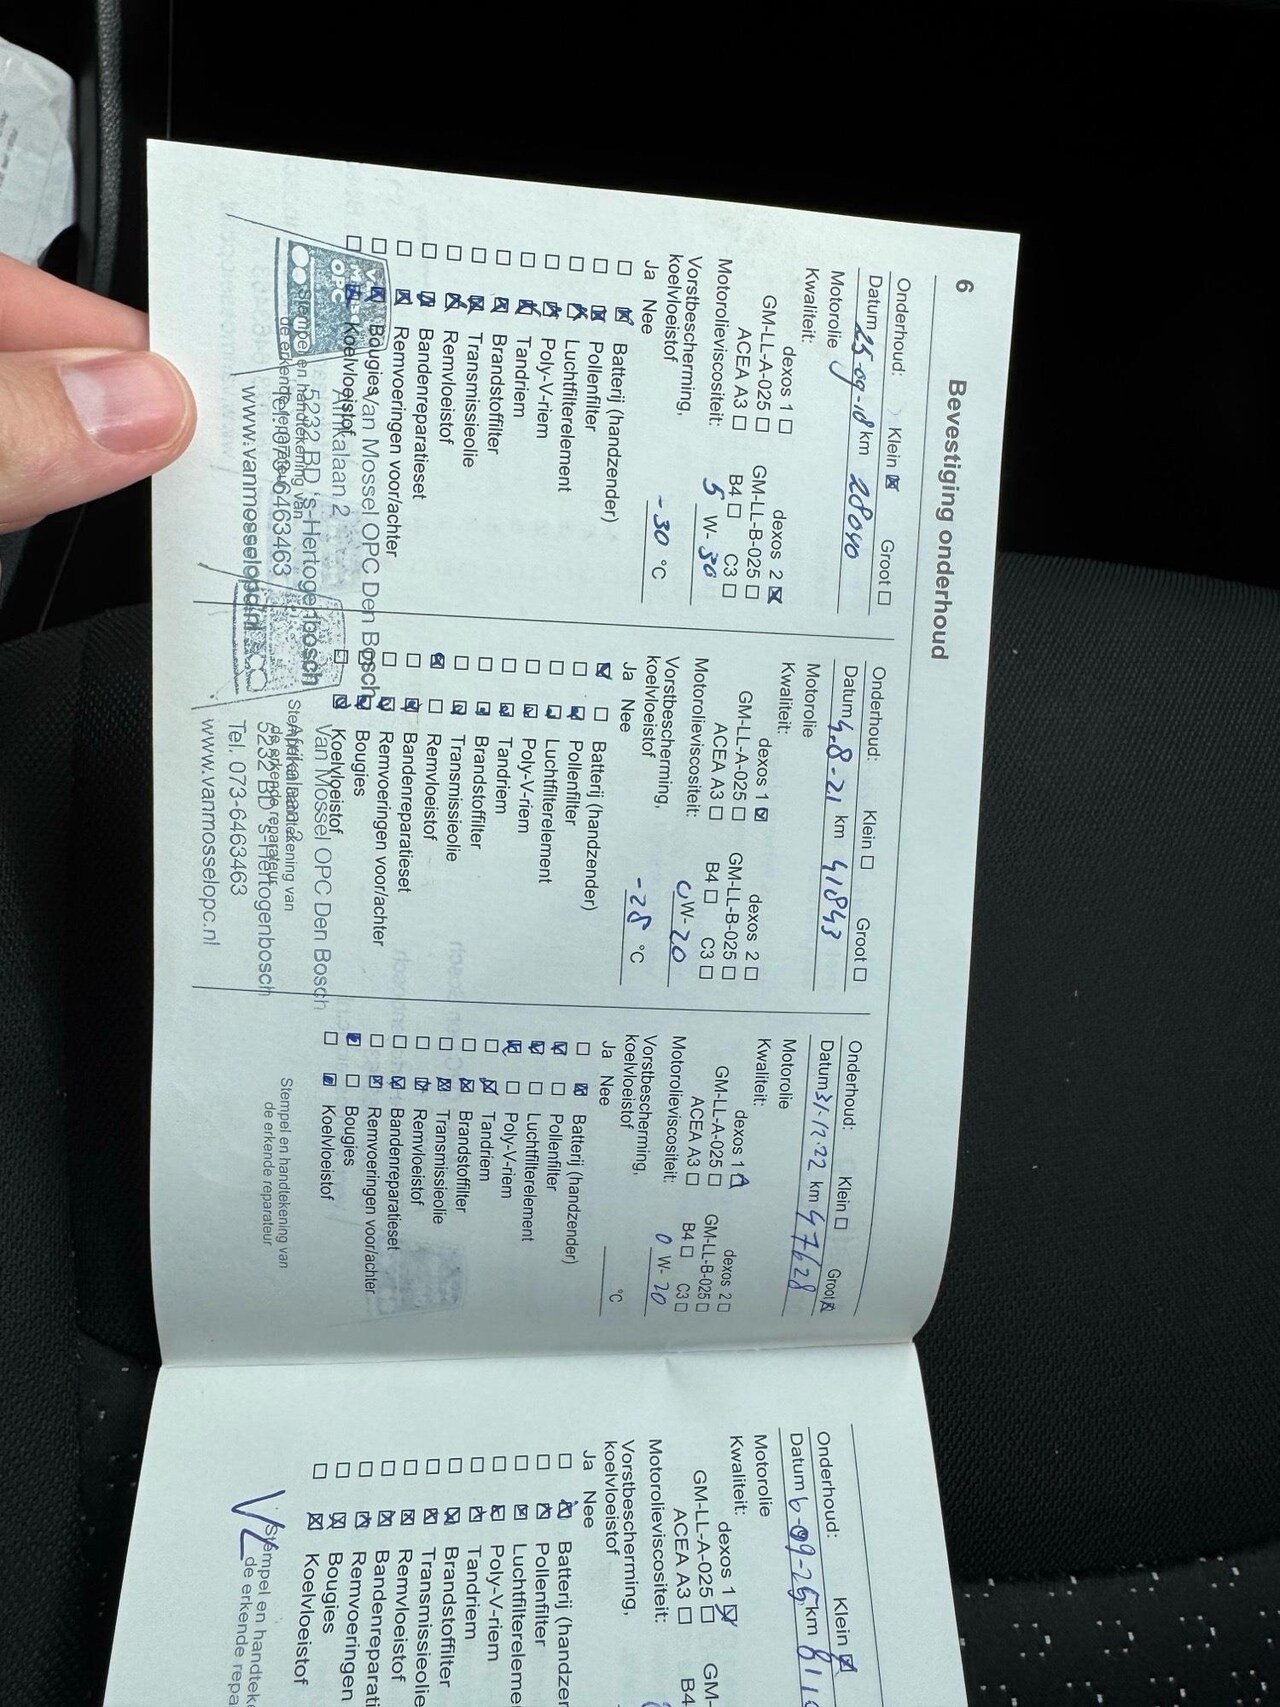 6 Bevestiging onderhoud
Onderhoud: Klein ☒ Groot ☐
Datum 25-09-18 km 28040
Motorolie
Kwaliteit: dexos 1 ☐ dexos 2 ☒
GM-LL-A-025 ☐ GM-LL-B-025 ☐
ACEA A3 ☐ B4 ☐ C3 ☐
Motorolieviscositeit: 5 W- 30
Vorstbescherming,
koelvloeistof -30 °C
Ja Nee
☐ ☒ Batterij (handzender)
☐ ☒ Pollenfilter
☐ ☒ Luchtfilterelement
☐ ☒ Poly-V-riem
☐ ☒ Tandriem
☐ ☒ Brandstoffilter
☐ ☒ Transmissieolie
☐ ☒ Remvloeistof
☐ ☒ Bandenreparatieset
☐ ☒ Remvoeringen voor/achter
☐ ☒ Bougies
☐ ☒ Koelvloeistof
Van Mossel OPC Den Bosch
Afrikalaan 2
5232 BD 's-Hertogenbosch
Tel. 073-6463463
www.vanmosselopc.nl
Stempel en handtekening van
de erkende reparateur
Onderhoud: Klein ☐ Groot ☐
Datum 4-8-21 km 41843
Motorolie
Kwaliteit: dexos 1 ☒ dexos 2 ☐
GM-LL-A-025 ☐ GM-LL-B-025 ☐
ACEA A3 ☐ B4 ☐ C3 ☐
Motorolieviscositeit: 0 W- 20
Vorstbescherming,
koelvloeistof -28 °C
Ja Nee
☒ ☐ Batterij (handzender)
☐ ☒ Pollenfilter
☐ ☒ Luchtfilterelement
☐ ☒ Poly-V-riem
☐ ☒ Tandriem
☐ ☒ Brandstoffilter
☐ ☒ Transmissieolie
☒ ☐ Remvloeistof
☐ ☒ Bandenreparatieset
☐ ☒ Remvoeringen voor/achter
☐ ☒ Bougies
☐ ☒ Koelvloeistof
Van Mossel OPC Den Bosch
Afrikalaan 2
5232 BD 's-Hertogenbosch
Tel. 073-6463463
www.vanmosselopc.nl
Stempel en handtekening van
de erkende reparateur
Onderhoud: Klein ☐ Groot ☒
Datum 31-12-22 km 47628
Motorolie
Kwaliteit: dexos 1 ☒ dexos 2 ☐
GM-LL-A-025 ☐ GM-LL-B-025 ☐
ACEA A3 ☐ B4 ☐ C3 ☐
Motorolieviscositeit: 0 W- 20
Vorstbescherming,
koelvloeistof °C
Ja Nee
☐ ☒ Batterij (handzender)
☒ ☐ Pollenfilter
☒ ☐ Luchtfilterelement
☒ ☐ Poly-V-riem
☐ ☒ Tandriem
☐ ☒ Brandstoffilter
☐ ☒ Transmissieolie
☐ ☒ Remvloeistof
☐ ☒ Bandenreparatieset
☐ ☒ Remvoeringen voor/achter
☒ ☐ Bougies
☐ ☒ Koelvloeistof
Stempel en handtekening van
de erkende reparateur
Onderhoud: Klein ☒
Datum 6-09-25 km
Motorolie
Kwaliteit: dexos 1 ☒
GM-LL-A-025 ☐ GM-
ACEA A3 ☐ B4
Motorolieviscositeit:
Vorstbescherming,
koelvloeistof
Ja Nee
☐ ☒ Batterij (handzen
☐ ☒ Pollenfilter
☐ ☒ Luchtfiltereleme
☐ ☒ Poly-V-riem
☐ ☒ Tandriem
☐ ☒ Brandstoffilter
☐ ☒ Transmissieolie
☐ ☒ Remvloeistof
☐ ☒ Bandenreparati
☐ ☒ Remvoeringen
☐ ☒ Bougies
☐ ☒ Koelvloeistof
Stempel en handteke
de erkende repa